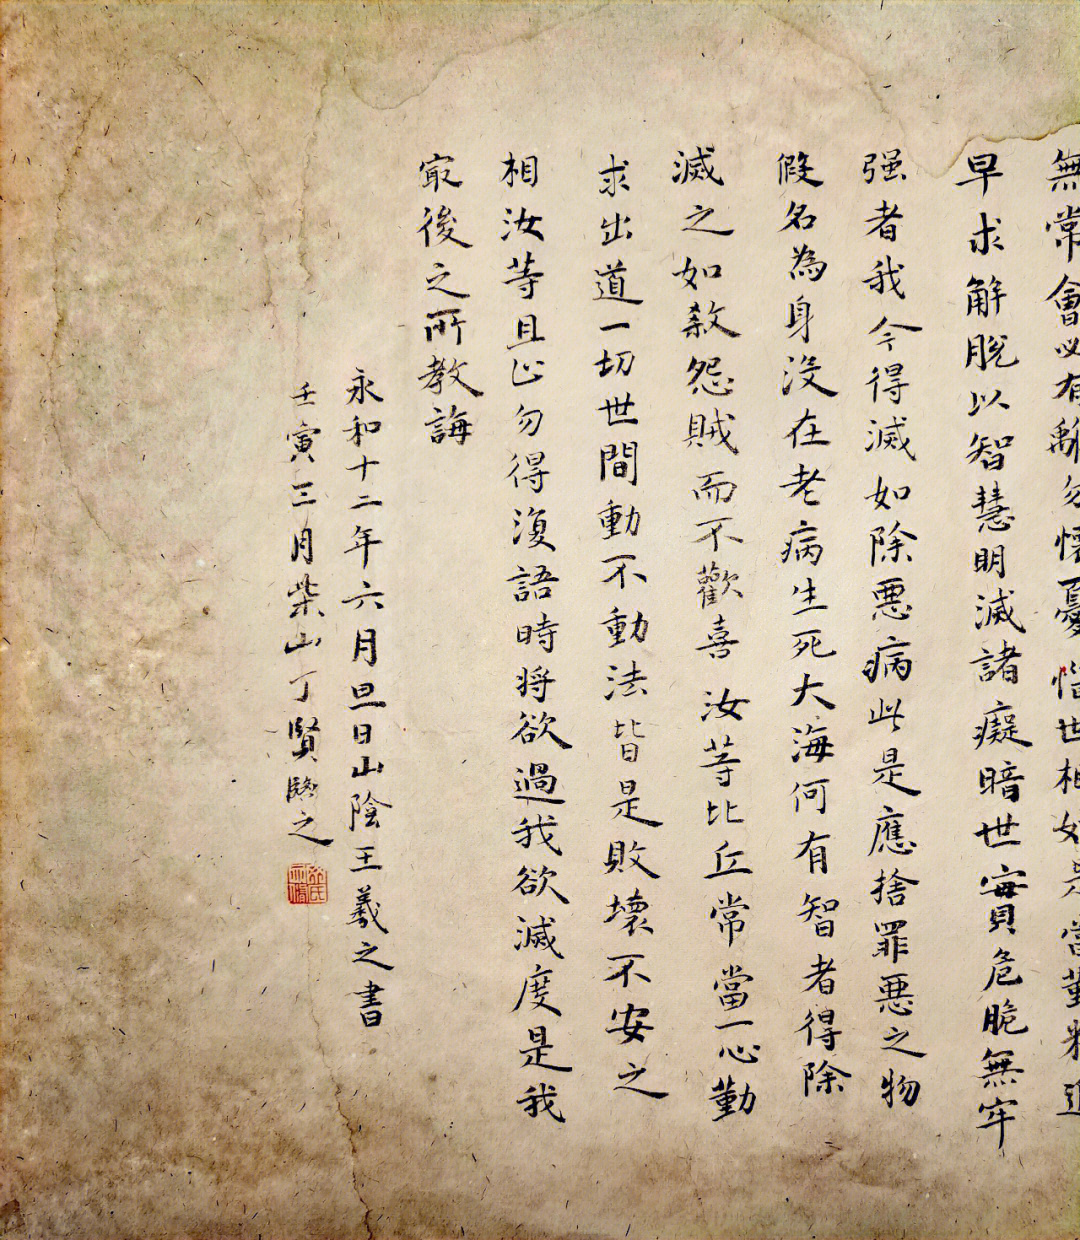 無常會必有離勿懷憂惱世相如是當勤精進
早求解脫以智慧明滅諸癡暗世實危脆無牢
强者我今得滅如除惡病此是應捨罪惡之物
假名為身沒在老病生死大海何有智者得除
滅之如殺怨賊而不歡喜 汝等比丘常當一心勤
求出道一切世間動不動法皆是敗壞不安之
相汝等且止勿得復語時將欲過我欲滅度是我
最後之所教誨
永和十二年六月旦日山陰王羲之書
壬寅三月柴山丁賢臨之